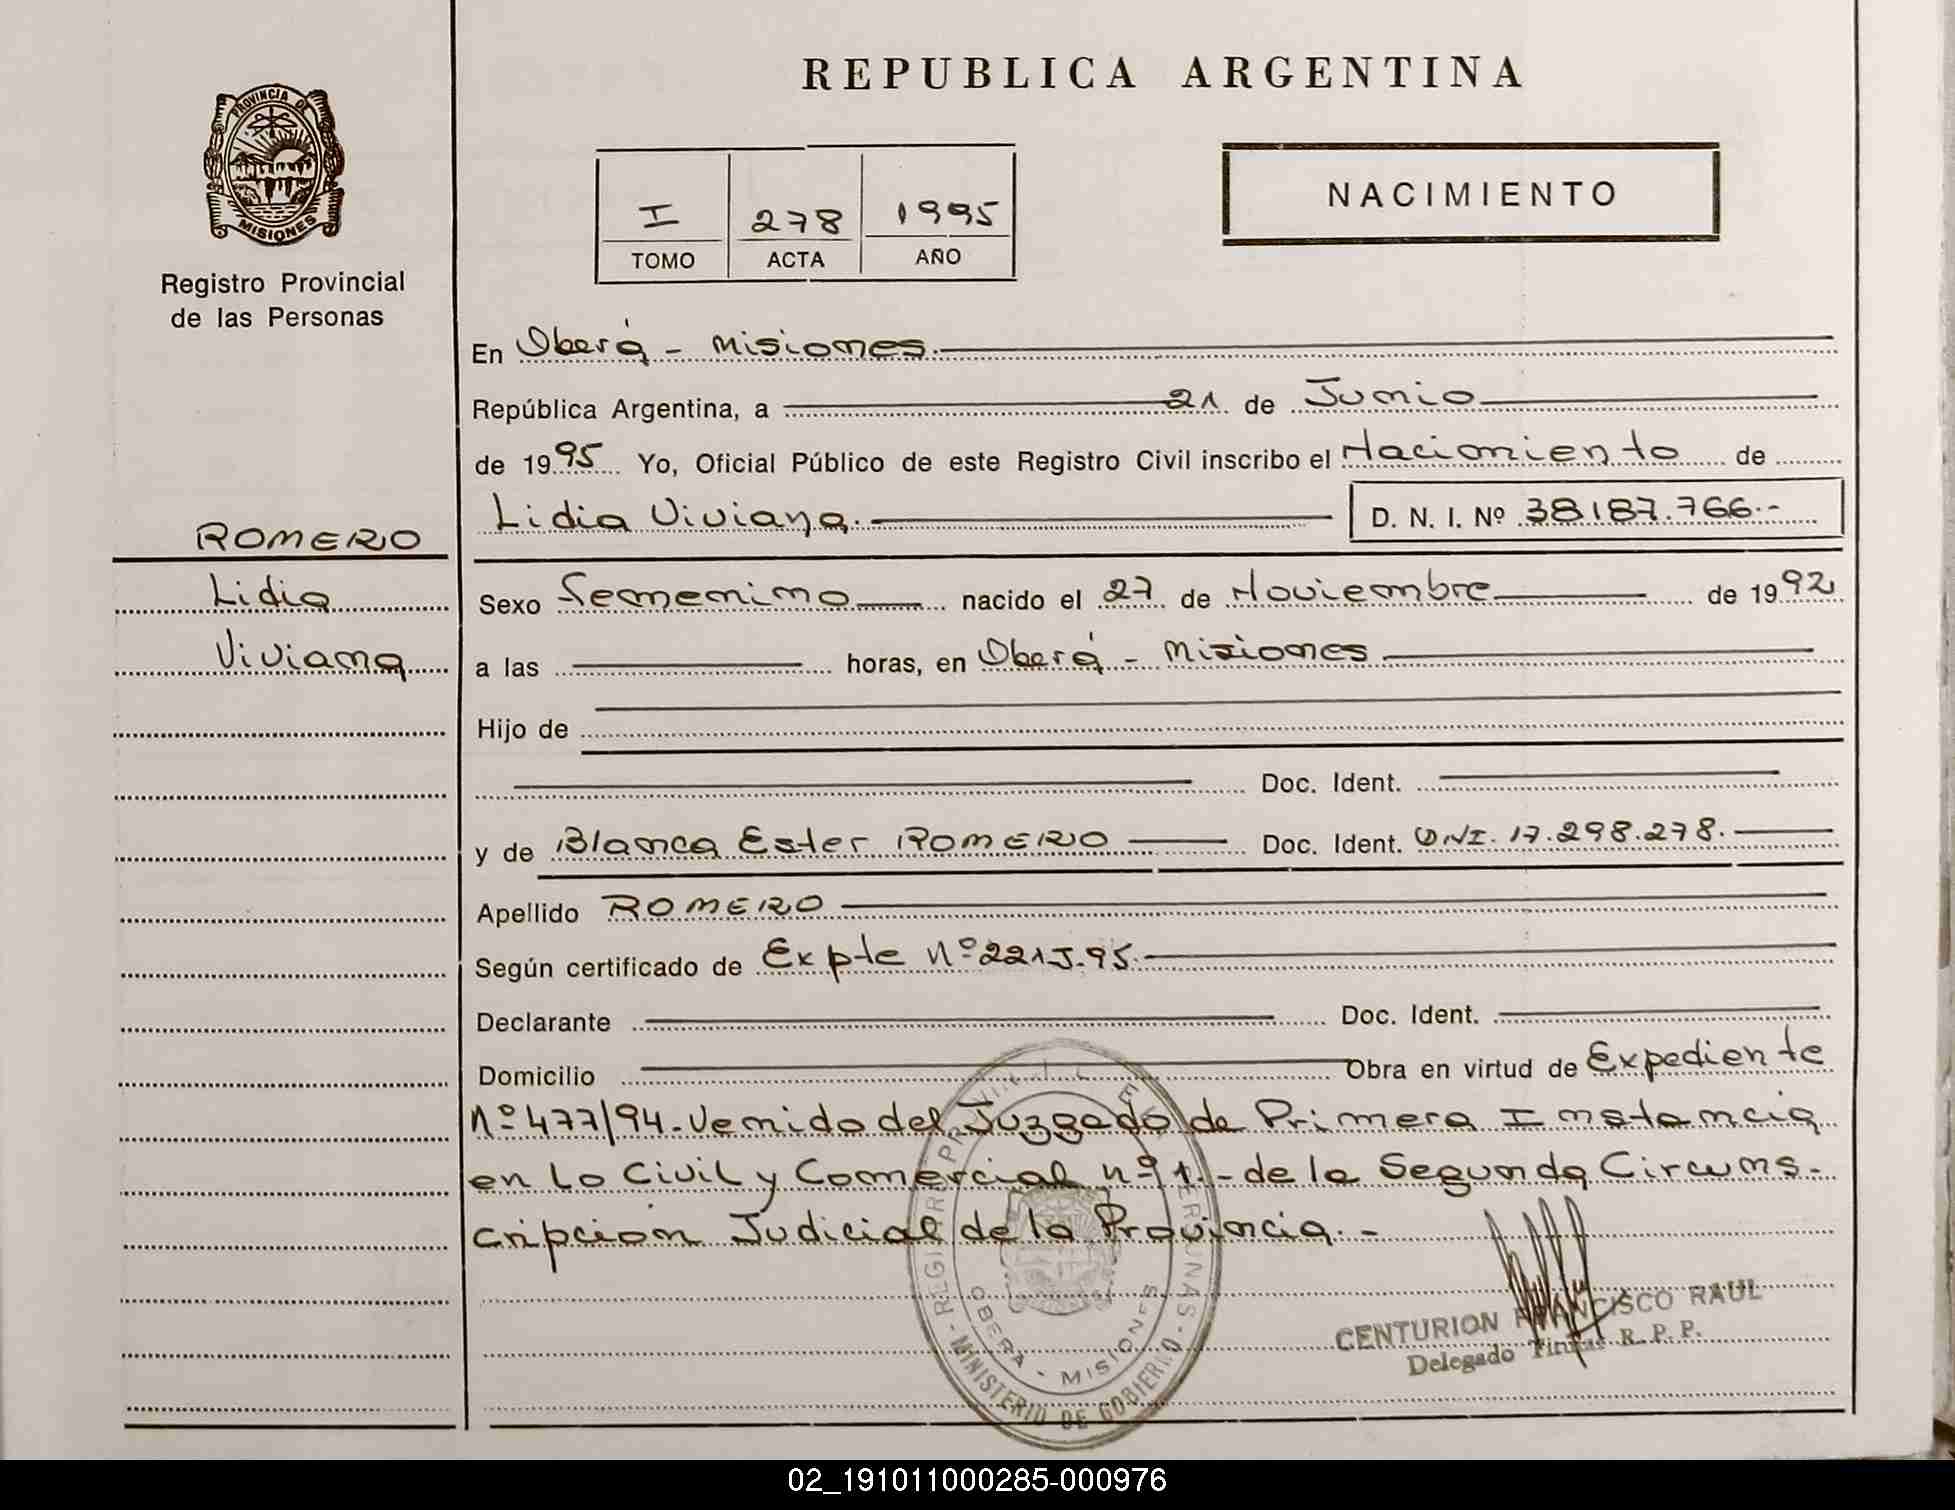 REPUBLICA ARGENTINA
PROVINCIA DE
MISIONES
Registro Provincial
de las Personas
I 278 1995
TOMO ACTA AÑO
NACIMIENTO
En Oberá - Misiones.
República Argentina, a 21 de Junio
de 1995 Yo, Oficial Público de este Registro Civil inscribo el Nacimiento de
Lidia Viviana. D. N. I. Nº 38.187.766.-
ROMERO
Lidia
Viviana
Sexo Femenino nacido el 27 de Noviembre de 1992
a las horas, en Oberá - Misiones
Hijo de
Doc. Ident.
y de Blanca Ester ROMERO Doc. Ident. DNI. 17.298.278.
Apellido ROMERO
Según certificado de Expte Nº 221J-95.
Declarante Doc. Ident.
Domicilio Obra en virtud de Expediente
Nº 477/94. Venido del Juzgado de Primera Instancia
en Lo Civil y Comercial nº 1.- de la Segunda Circuns-
cripción Judicial de la Provincia.-
OBERA - MISIONES
MINISTERIO DE GOBIERNO
CENTURION FRANCISCO RAUL
Delegado Titular R. P. P.
02_191011000285-000976